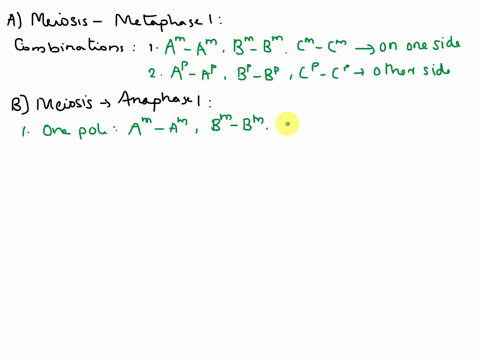 A) Meiosis - Metaphase 1:
Combinations : 1. Aᵐ-Aᵐ. Bᵐ-Bᵐ. Cᵐ-Cᵐ → on one side
2. Aᴾ-Aᴾ, Bᴾ-Bᴾ, Cᴾ-Cᴾ → other side
B) Meiosis → Anaphase 1:
1. One pol: Aᵐ-Aᵐ, Bᵐ-Bᵐ.